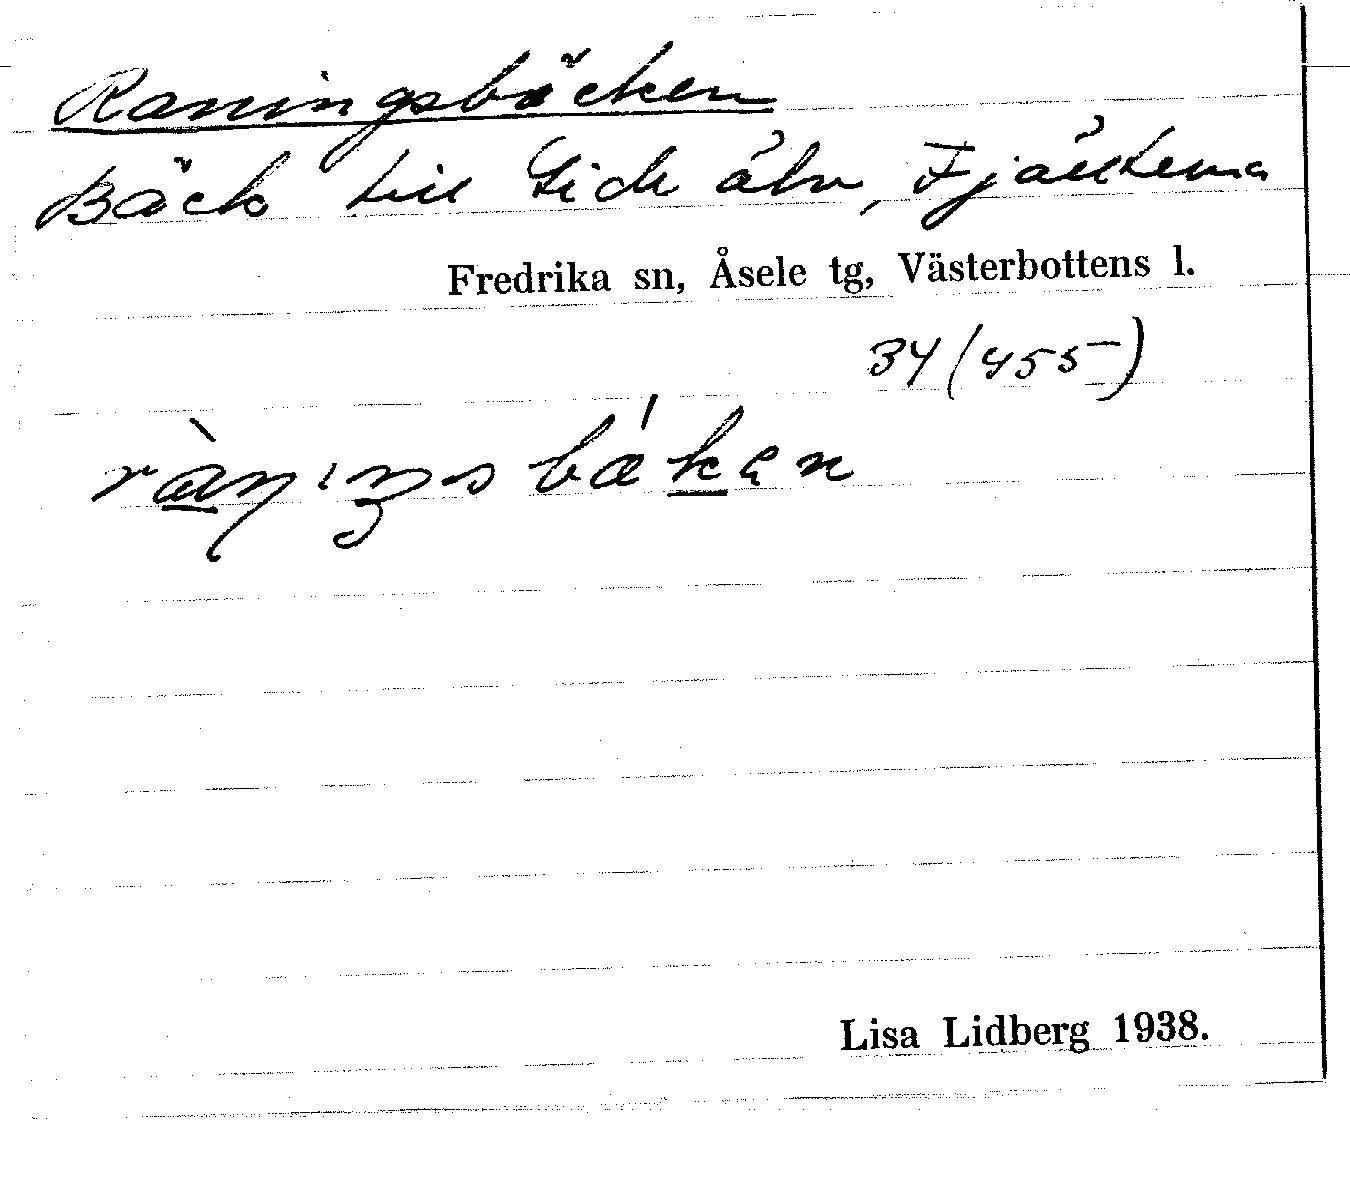 Raningsbäcken
Bäck till Gide älv, Fjälltuna
Fredrika sn, Åsele tg, Västerbottens l.
34 (455-)
Lisa Lidberg 1938.